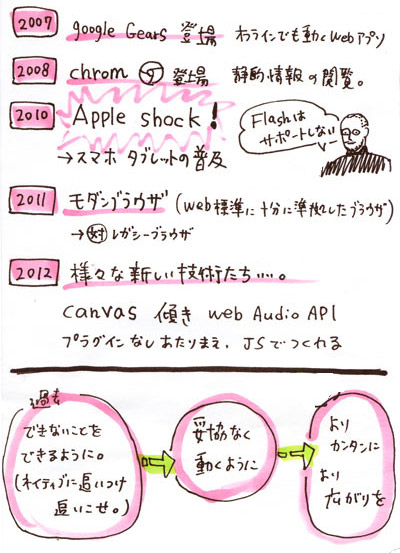 2007 google Gears 登場 オフラインでも動くwebアプリ
2008 chrom 登場 静的情報の閲覧。
2010 Apple shock!
Flashは
サポートしない
→スマホ タブレットの普及
2011 モダンブラウザ (web標準に十分に準拠したブラウザ)
→対 レガシーブラウザ
2012 様々な新しい技術たち……。
canvas 傾き web Audio API
プラグインなしあたりまえ、JSでつくれる
過去
できないことを
できるように。
(ネイティブに追いつけ
追いこせ。)
妥協なく
動くように
より
カンタンに
より
広がりを